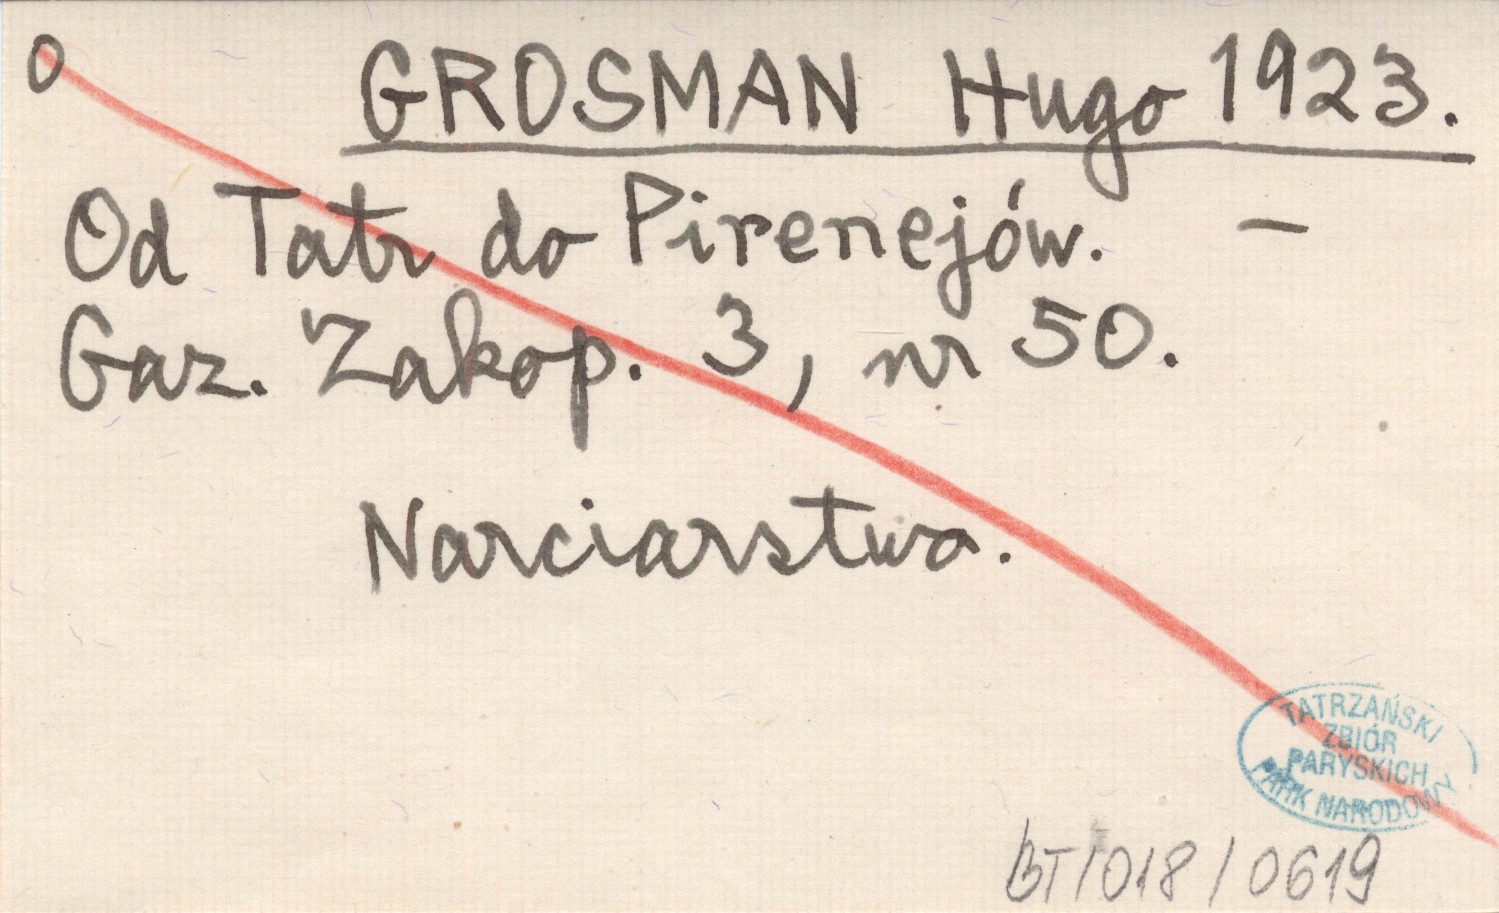 O GROSMAN Hugo 1923.
Od Tatr do Pirenejów. —
Gaz. Zakop. 3, nr 50.
Narciarstwo.
TATRZAŃSKI
ZBIÓR
PARYSKICH
PARK NARODOWY
BT/018/0619